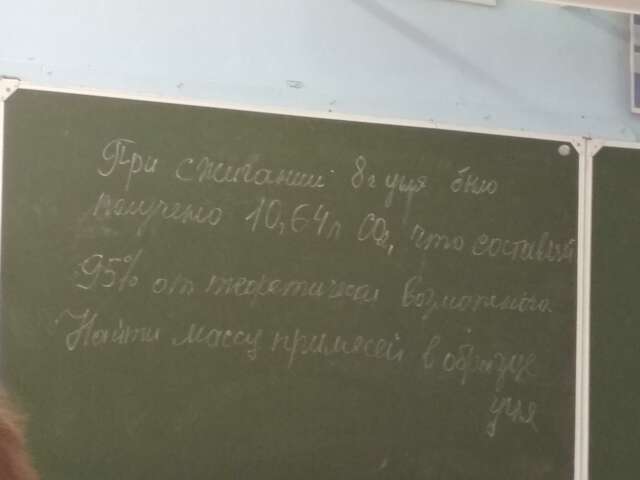 При сжигании 8г угля было
получено 10,64л CO2, что составляет
95% от теоретически возможного
Найти массу примесей в образце
угля